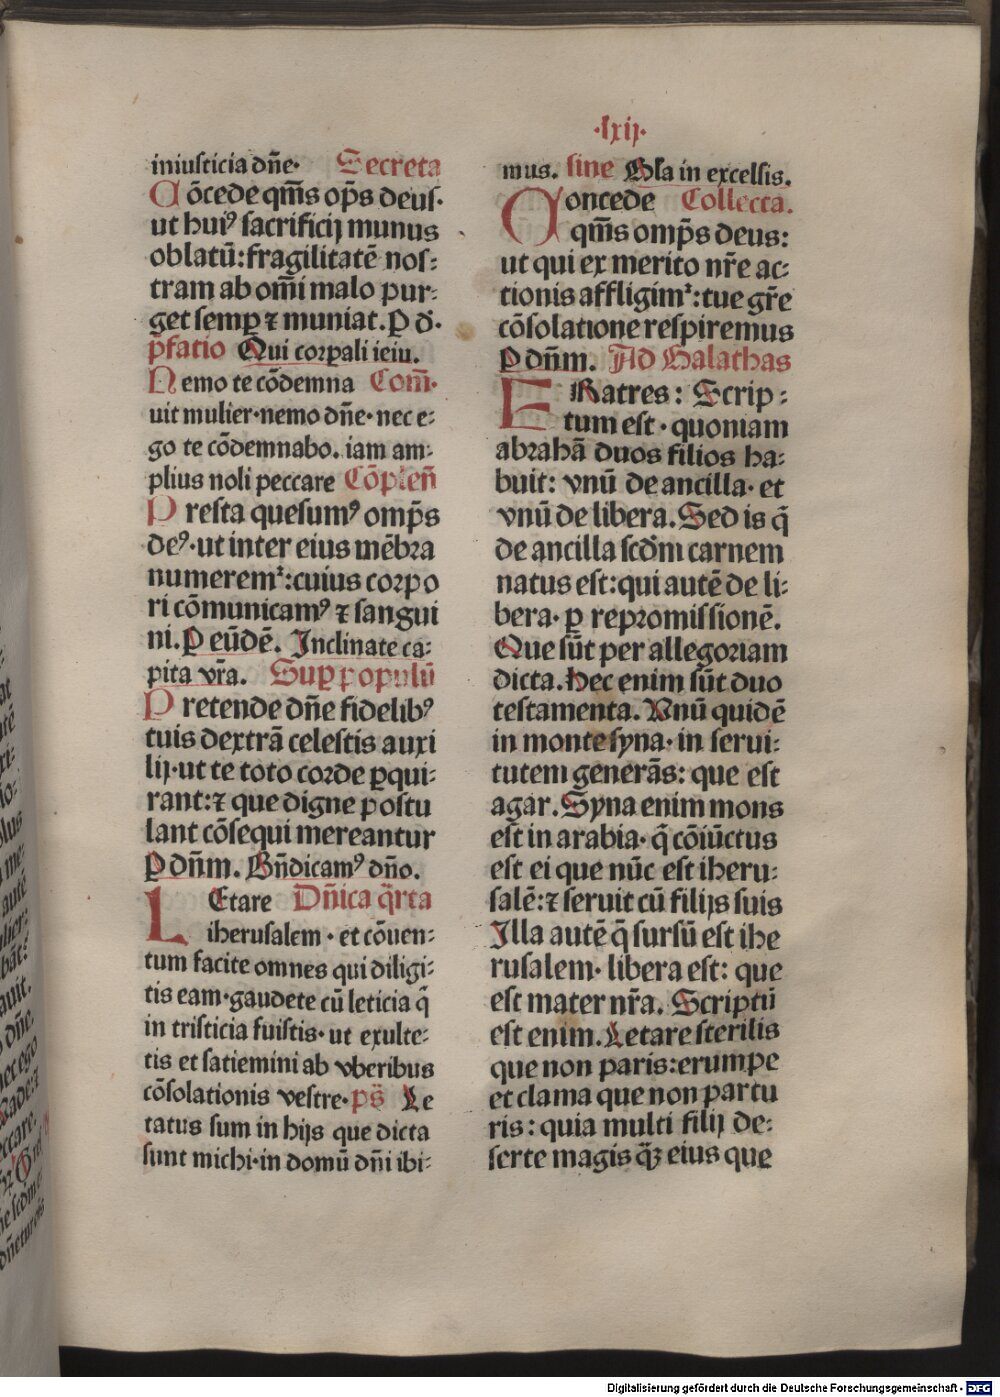 ·lxij·
iniusticia dñe· Secreta
Cõcede qm̃s op̃s deus·
ut huiꝰ sacrificij munus
oblatũ: fragilitatẽ nos:
tram ab om̃i malo pur:
get semꝑ ⁊ muniat. P d̃·
p̃fatio Qui corꝑali ieiu.
Nemo te cõdemna Com̃·
uit mulier· nemo dñe· nec e:
go te cõdemnabo. iam am:
plius noli peccare Cõpleñ
Presta quesumꝰ omp̃s
deꝰ· ut inter eius mẽbra
numerem᷑: cuius corpo
ri cõmunicamꝰ ⁊ sangui
ni. P eũdẽ. Inclinate ca:
pita vr̃a. Suꝑ populũ
Pretende dñe fidelibꝰ
tuis dextrã celestis auxi
lij· ut te toto corde ꝑqui:
rant: ⁊ que digne postu
lant cõsequi mereantur
P dñm. Bñdicamꝰ dño.
LEtare Dñica q̃rta
iherusalem · et cõuen:
tum facite omnes qui diligi:
tis eam· gaudete cũ leticia q̃
in tristicia fuistis· ut exulte:
tis et satiemini ab vberibus
cõsolationis vestre· ps̃ Le
tatus sum in hijs que dicta
sunt michi· in domũ dñi ibi:
mus. sine Gl̃a in excelsis.
Concede Collecta.
qm̃s omp̃s deus:
ut qui ex merito nr̃e ac:
tionis affligim᷑: tue gr̃e
cõsolatione respiremus
P dñm. Ad Galathas
FRatres: Scrip:
tum est · quoniam
abrahã duos filios ha:
buit: vnũ de ancilla· et
vnũ de libera. Sed is q̃
de ancilla scd̃m carnem
natus est: qui autẽ de li:
bera· ꝑ repromissionẽ.
Que sũt per allegoriam
dicta. Hec enim sũt duo
testamenta. Vnũ quidẽ
in monte syna· in serui:
tutem generãs: que est
agar. Syna enim mons
est in arabia· q̃ cõiũctus
est ei que nũc est iheru:
salẽ: ⁊ seruit cũ filijs suis
Illa autẽ q̃ sursũ est ihe
rusalem· libera est: que
est mater nr̃a. Scriptũ
est enim. Letare sterilis
que non paris: erumpe
et clama que non partu
ris: quia multi filij de:
serte magis q̃ȝ eius que
Digitalisierung gefördert durch die Deutsche Forschungsgemeinschaft - DFG